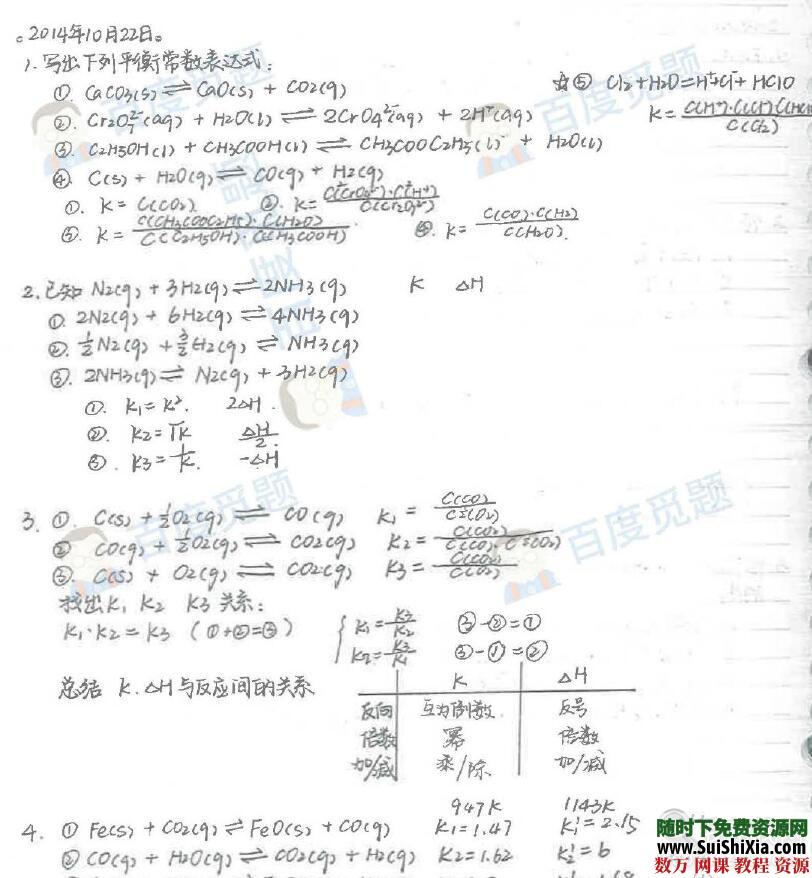 。2014年10月22日。
1.写出下列平衡常数表达式:
①. CaCO3(s) ⇌ CaO(s) + CO2(g)
☆⑤ Cl2+H2O=H⁺+Cl⁻+HClO
K=C(H⁺)·C(Cl⁻)·C(HClO)/C(Cl2)
②. Cr2O7²⁻(aq) + H2O(l) ⇌ 2CrO4²⁻(aq) + 2H⁺(aq)
③. C2H5OH(l) + CH3COOH(l) ⇌ CH3COOC2H5(l) + H2O(l)
④. C(s) + H2O(g) ⇌ CO(g) + H2(g)
①. K = C(CO2) ②. K = C²(CrO4²⁻)·C²(H⁺)/C(Cr2O7²⁻)
③. K = C(CH3COOC2H5)·C(H2O)/C(C2H5OH)·C(CH3COOH) ④. K = C(CO)·C(H2)/C(H2O).
2.已知 N2(g) + 3H2(g) ⇌ 2NH3(g) K ΔH
①. 2N2(g) + 6H2(g) ⇌ 4NH3(g)
②. 1/2N2(g) + 3/2H2(g) ⇌ NH3(g)
③. 2NH3(g) ⇌ N2(g) + 3H2(g)
①. K1=K². 2ΔH.
②. K2=√K ΔH/2.
③. K3=1/K. -ΔH
3. ①. C(s) + 1/2O2(g) ⇌ CO(g) K1 = C(CO)/C^½(O2)
② CO(g) + 1/2O2(g) ⇌ CO2(g) K2 = C(CO2)/C(CO)·C^½(O2)
③ C(s) + O2(g) ⇌ CO2(g) K3 = C(CO2)/C(O2)
找出K1 K2 K3关系:
K1·K2=K3 (①+②=③)
K1=K3/K2 ③-②=①
K2=K3/K1 ③-①=②
总结 K.ΔH与反应间的关系
K ΔH
反向 互为倒数 反号
倍数 幂 倍数
加/减 乘/除 加/减
947K 1143K
4. ① Fe(s) + CO2(g) ⇌ FeO(s) + CO(g) K1=1.47 K1'=2.15
② CO(g) + H2O(g) ⇌ CO2(g) + H2(g) K2=1.62 K2'=6
百度觅题
百度觅题
百度觅题
百度觅题
百度觅题
随时下免费资源网
www.SuiShiXia.com
数万 网课 教程 资源